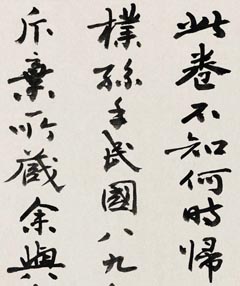 此卷不知何時歸
樸孫手民國八九
斥棄所藏余與